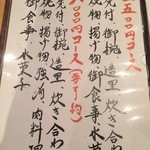 五〇〇〇円コース
先付、御椀、造里、炊き合わ
焼物、揚げ物、御食事、水菓
八〇〇〇円コース(要予約)
先付、御椀、造里、炊き合わ
焼物、揚げ物、強肴、肉料理
御食事、水菓子